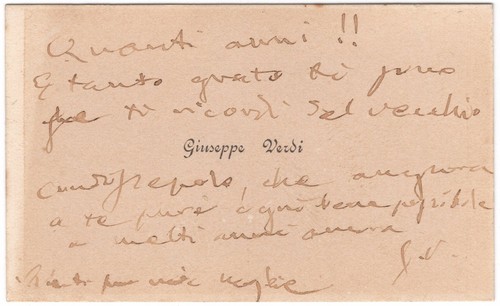 Quanti anni!!
E tanto grato ti sono
che ti ricordi del vecchio
Giuseppe Verdi
che auguro
a te pure ogni bene possibile
a molti anni ancora
G.V.
per mia moglie